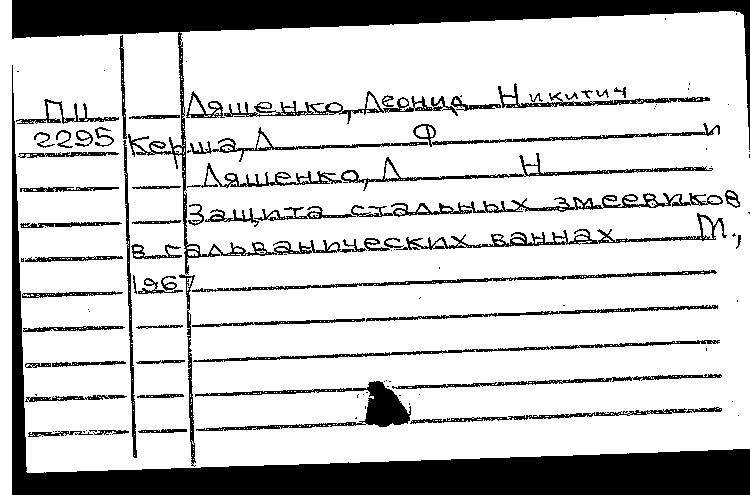 ПII Ляшенко, Леонид Никитич
2295 Керша, Л Ф и
Ляшенко, Л Н
Защита стальных змеевиков
в гальванических ваннах М.,
1967